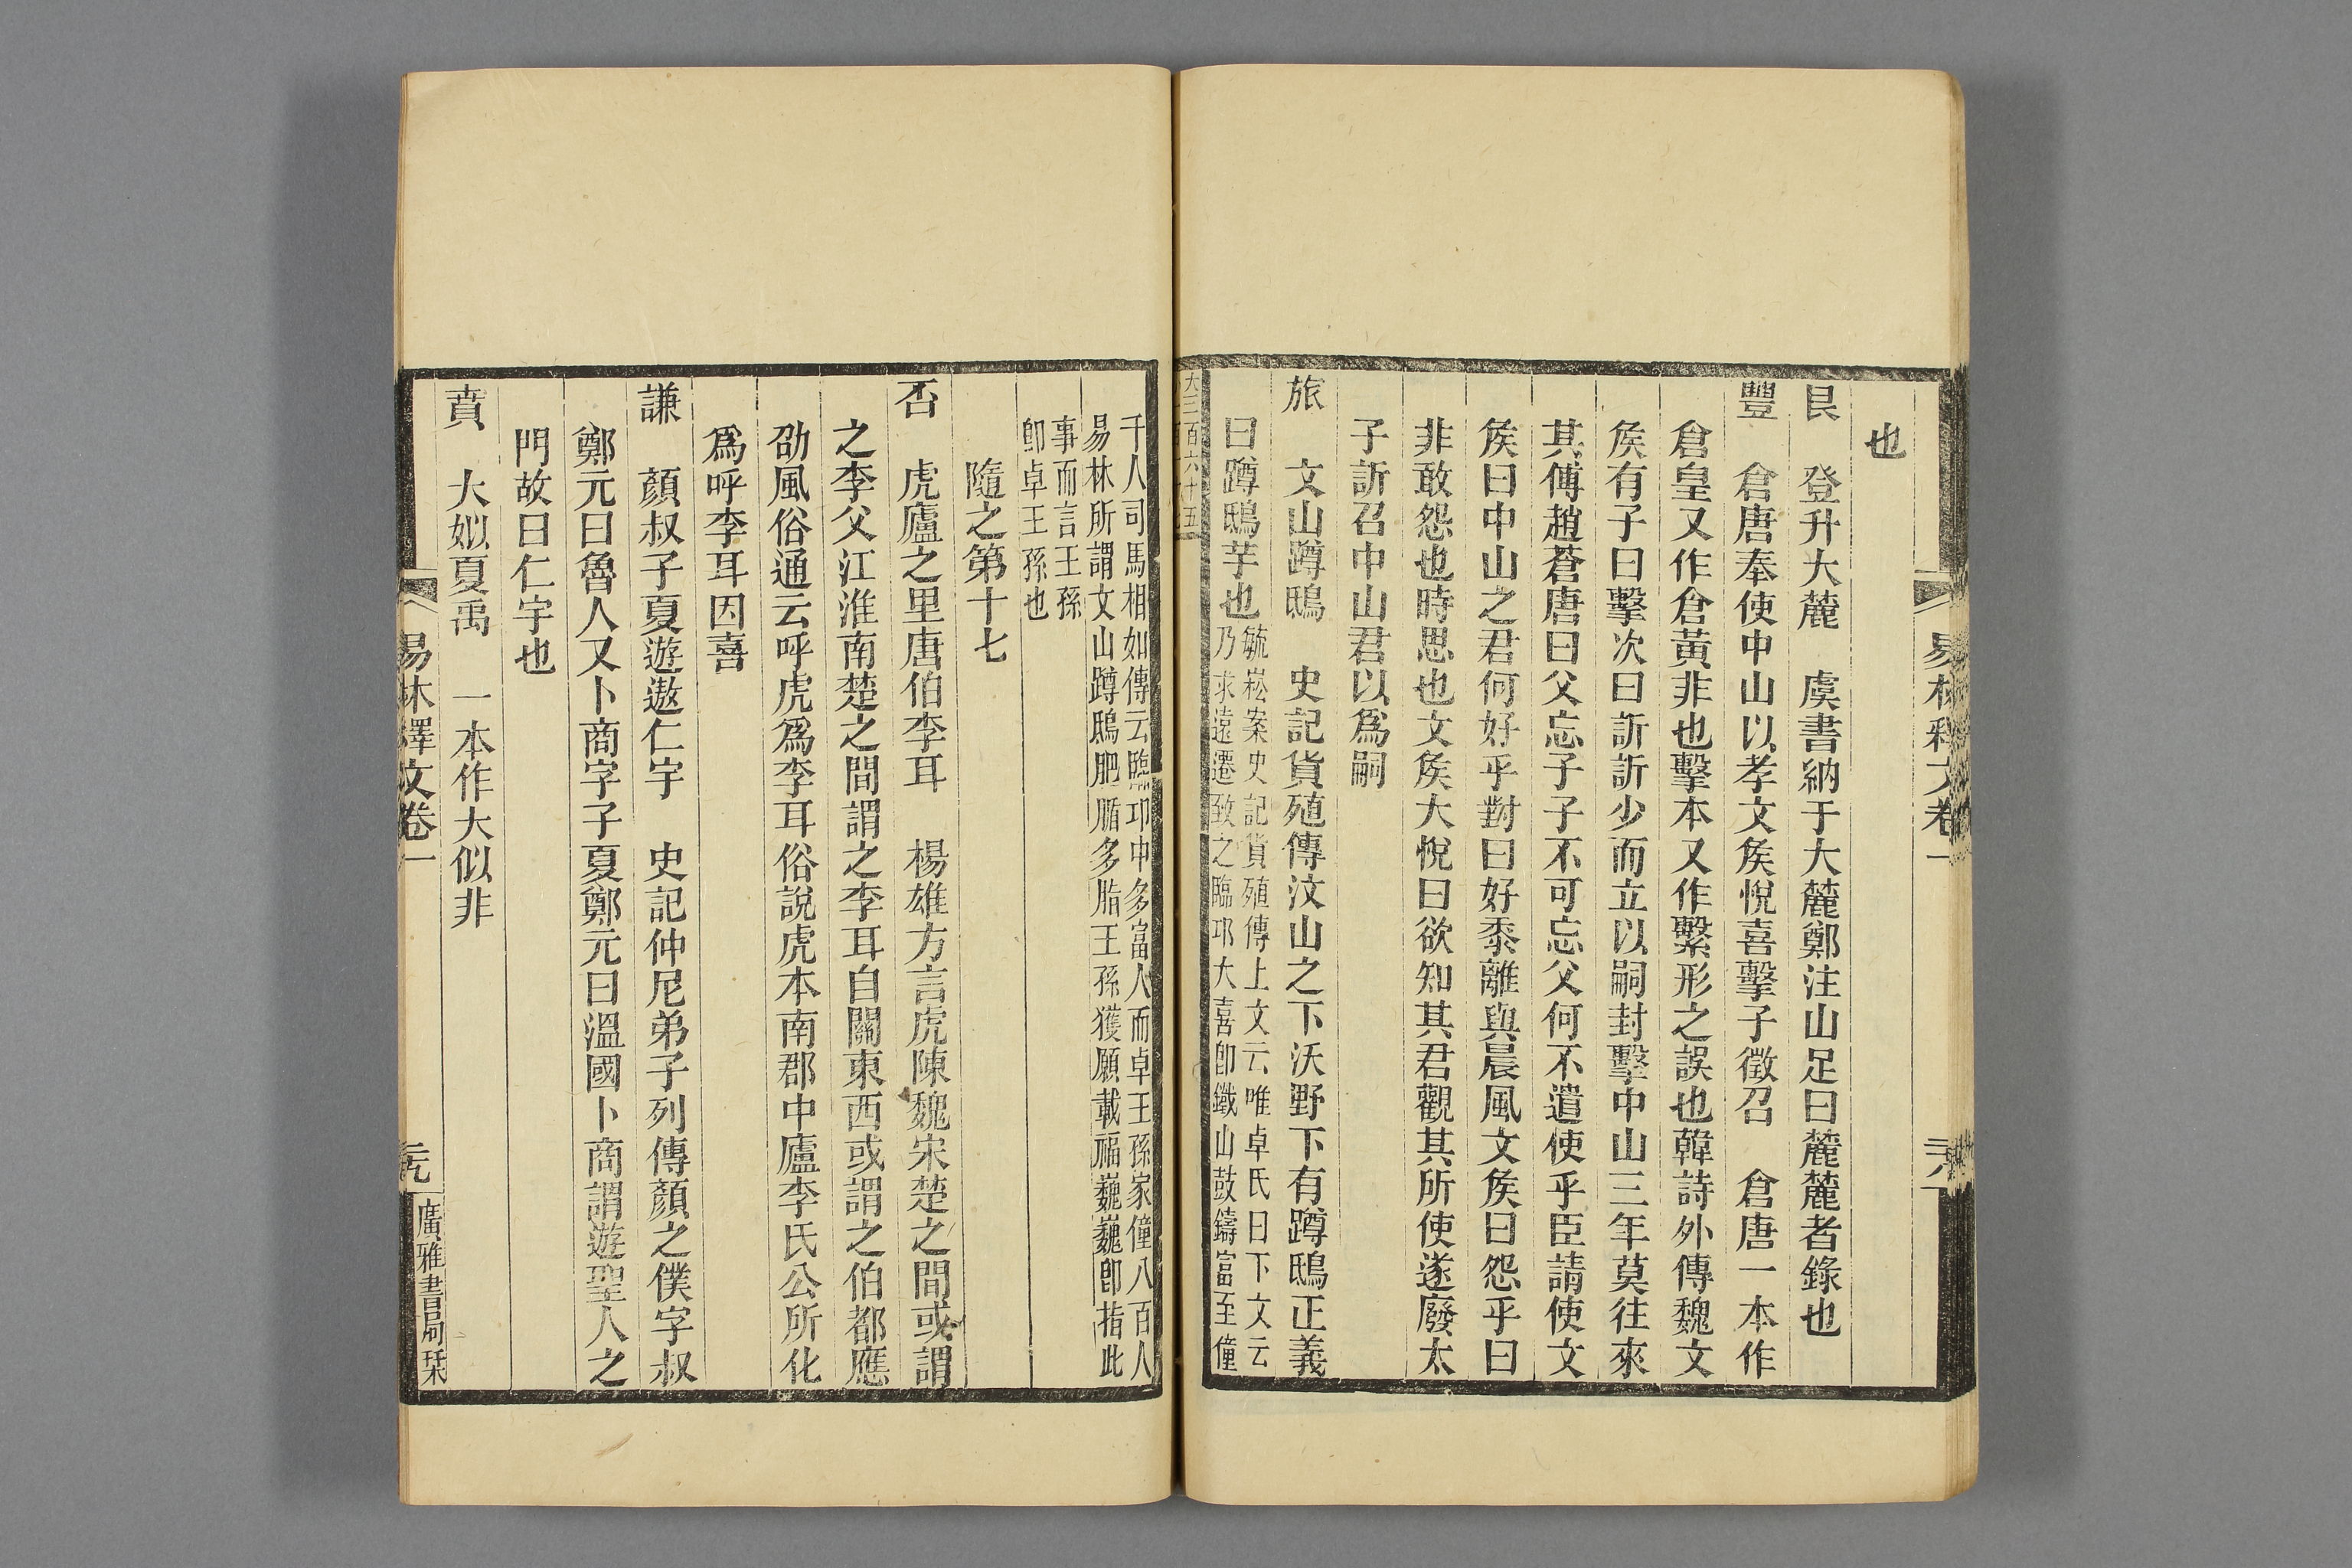 易林釋文卷一
二八
也
艮　登升大麓　虞書納于大麓鄭注山足曰麓麓者錄也
豐　倉唐奉使中山以孝文矦悅喜擊子徵召　倉唐一本作
倉皇又作倉黃非也擊本又作繫形之誤也韓詩外傳魏文
矦有子曰擊次曰訢訢少而立以嗣封擊中山三年莫往來
其傅趙蒼唐曰父忘子子不可忘父何不遣使乎臣請使文
矦曰中山之君何好乎對曰好黍離與晨風文矦曰怨乎曰
非敢怨也時思也文矦大悅曰欲知其君觀其所使遂廢太
子訢召中山君以爲嗣
旅　文山蹲鴟　史記貨殖傳汶山之下沃野下有蹲鴟正義
曰蹲鴟芋也
毓崧案史記貨殖傳上文云唯卓氏曰下文云
乃求遠遷致之臨邛大喜卽鐵山鼓鑄富至僮
大三百六十五
千人司馬相如傳云臨邛中多富人而卓王孫家僮八百人
易林所謂文山蹲鴟肥腯多脂王孫獲願載福巍巍卽指此
事而言王孫
卽卓王孫也
隨之第十七
否　虎廬之里唐伯李耳　楊雄方言虎陳魏宋楚之間或謂
之李父江淮南楚之間謂之李耳自關東西或謂之伯都應
劭風俗通云呼虎爲李耳俗說虎本南郡中廬李氏公所化
爲呼李耳因喜
謙　顏叔子夏遊遨仁宇　史記仲尼弟子列傳顏之僕字叔
鄭元曰魯人又卜商字子夏鄭元曰溫國卜商謂遊聖人之
門故曰仁宇也
賁　大姒夏禹　一本作大似非
易林釋文卷一
二九
廣雅書局栞